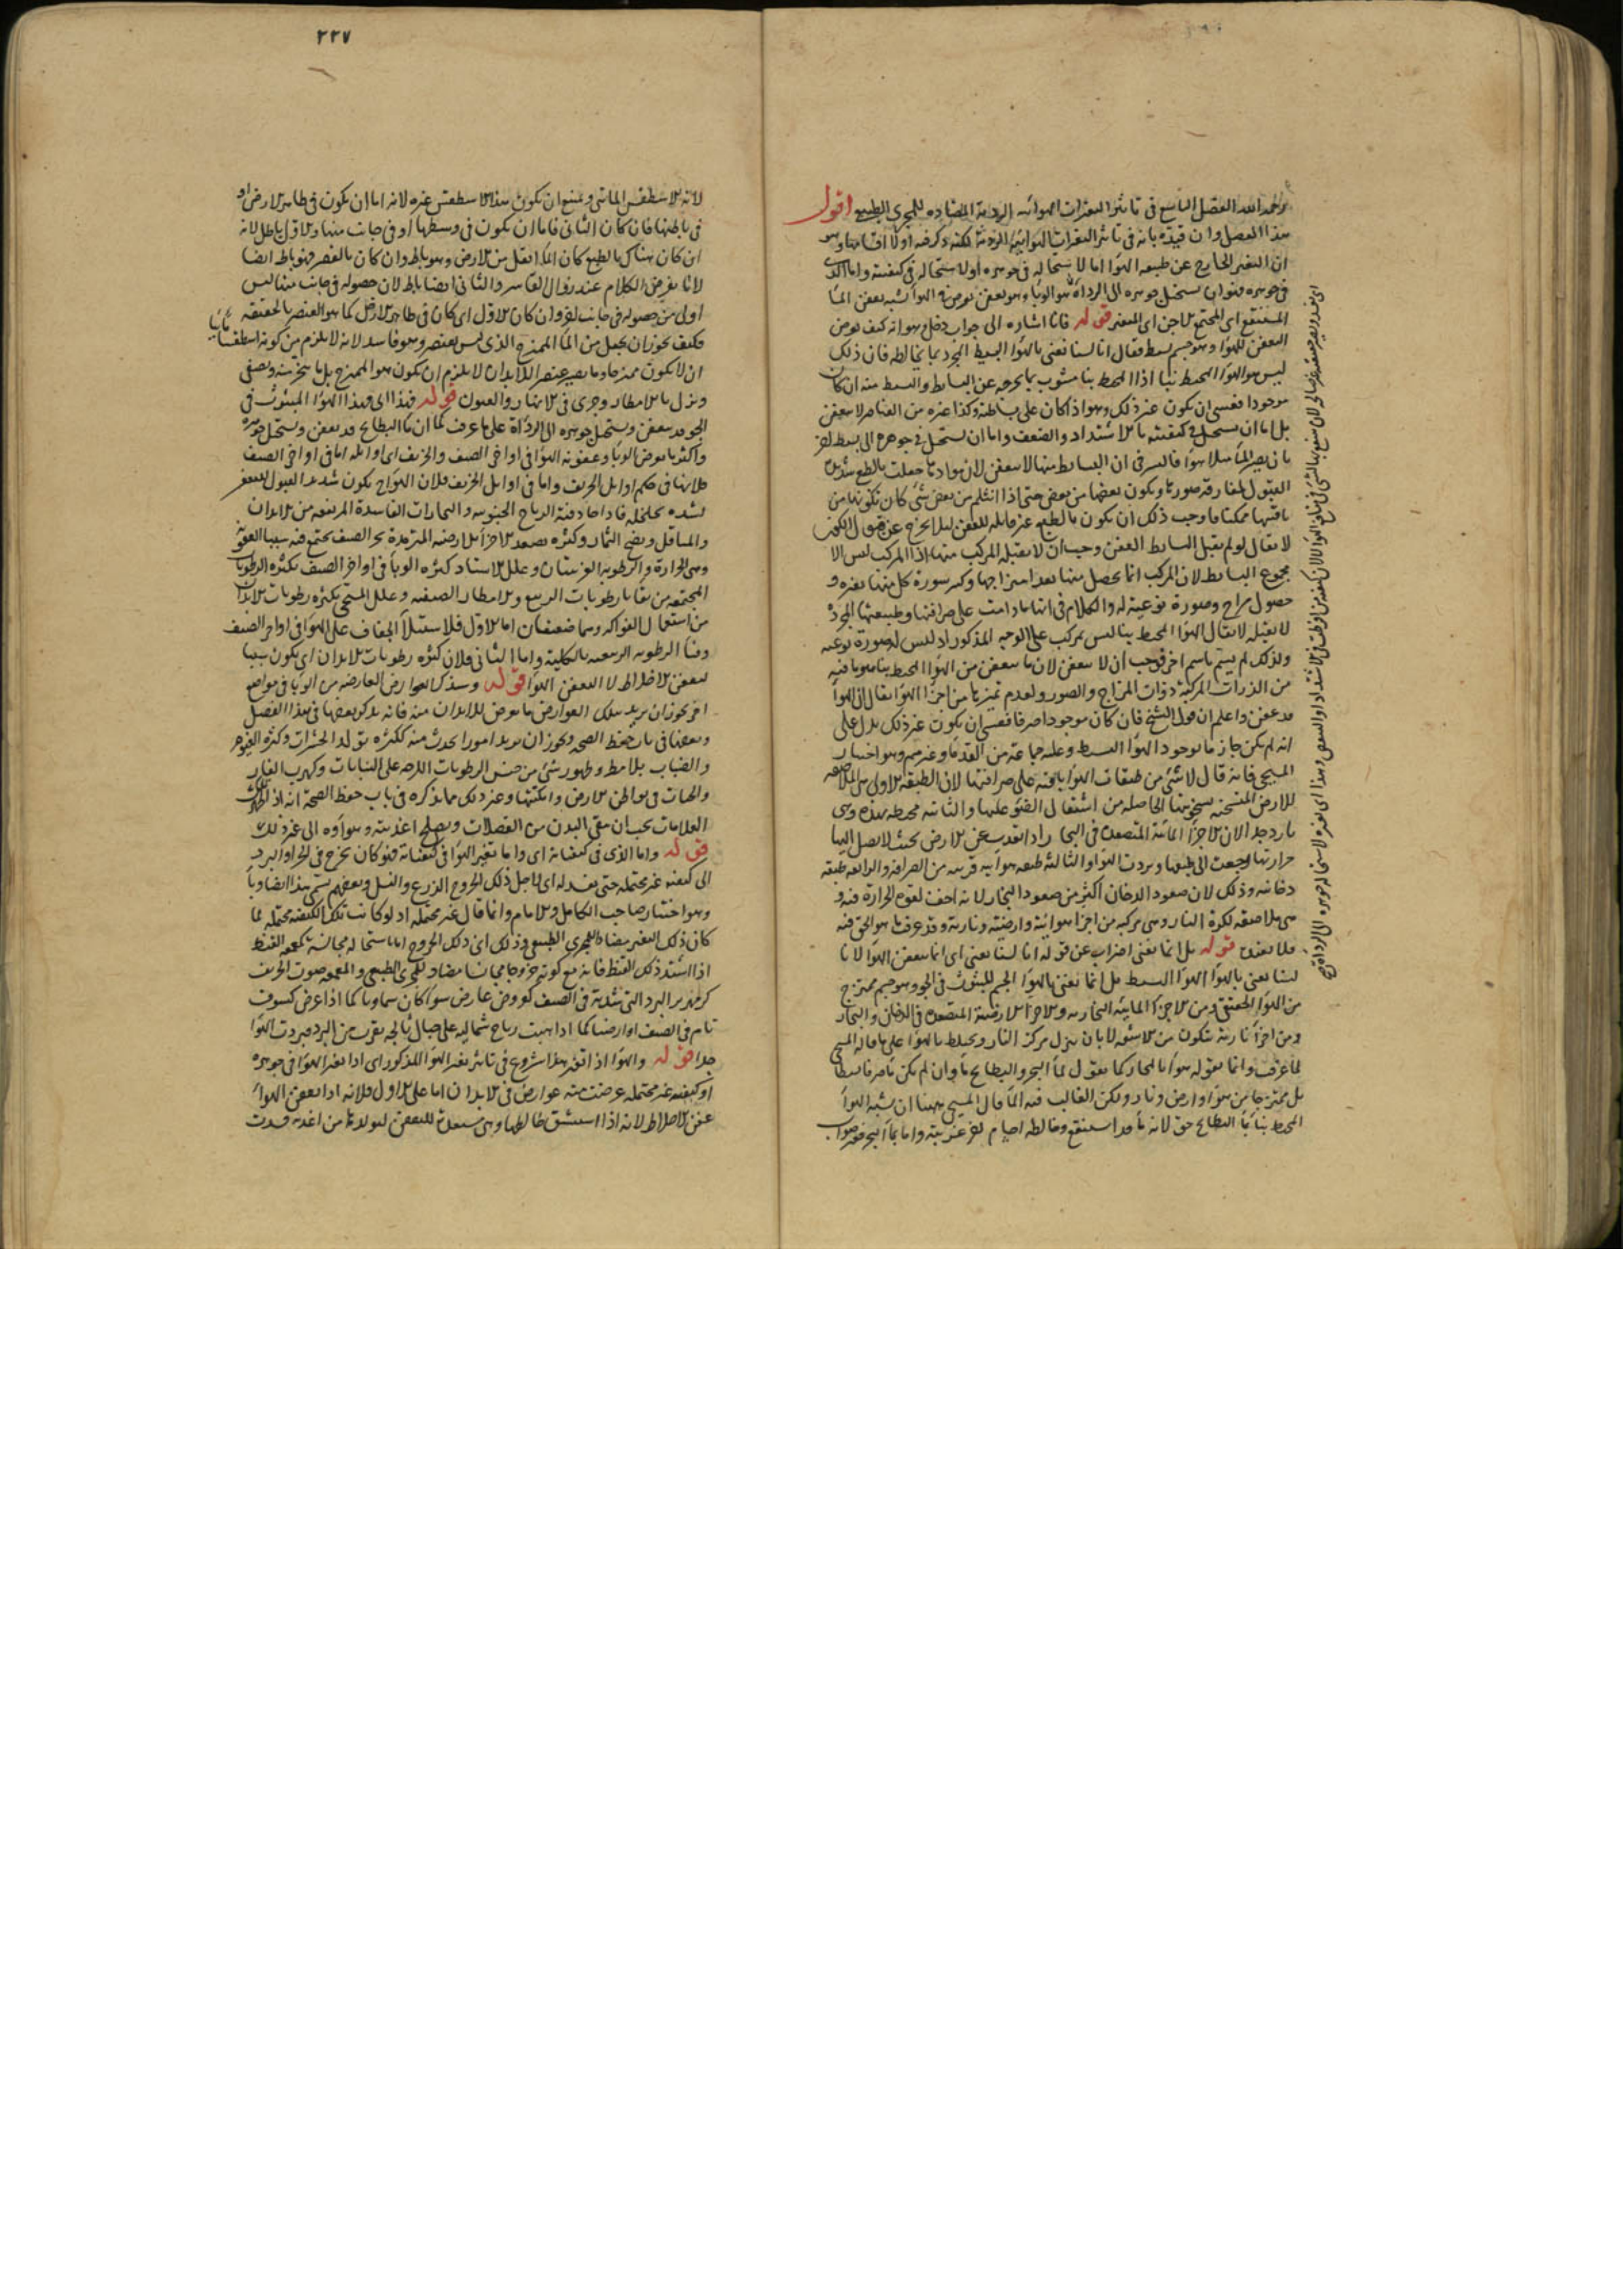 الفصل التاسع فى تاثير التغيرات الهوائيه الرديه المضاده للمجرى الطبيعى اقول
هذا الفصل وان قيده بانه فى تاثير التغيرات الهوائيه الرديه لكنه ذكر فيه اولا اقسامها وهو
ان التغير الخارج عن طبيعه الهوا اما لاستحاله فى جوهره او لاستحاله فى كيفيته واما الذى
فى جوهره فهو ان يستحيل جوهره الى الرداة وهو الوباء وهو تعفن يعرض فى الهوا يشبه تعفن الما
المستنقع اى المجتمع الاجن اى المتغير قوله فانا اشاره الى جواب دخل هو انه كيف يعرض
التعفن للهوا وهو جسم بسيط فقال انا لسنا نعنى بالهوا البسيط المجرد بما يخالطه فان ذلك
ليس هو الهوا المحيط بنا اذ المحيط بنا مشوب بما يخرجه عن البساطه والبسيط منه ان كان
موجودا فعسى ان يكون غير ذلك وهو اذا كان على بساطته وكذا غيره من العناصر لا يعفن
بل اما ان يستحيل فى كيفيته بالاشتداد والضعف واما ان يستحيل فى جوهره الى بسيط اخر
بان يصير الما مثلا هوا فالسر فى ان البسايط منها لا يتعفن لان موادها جعلت بالطبع شديده
القبول لمفارقه صورها ويكون بعضها من بعض حتى اذا انثلم من بعض شى كان تكونها من
باقيها ممكنا فاوجب ذلك ان يكون بالطبع غير قابله للعفن ليلا يخرج عن قبول الكون
لا يقال لو لم يقبل البسايط العفن وجب ان لا يقبله المركب منها اذ المركب ليس الا
مجموع البسايط لان المركب انما يحصل منها بعد امتزاجها وكسر سورة كل منها بغيره و
حصول مزاج وصورة نوعيه له والكلام فى انها ما دامت على صرافتها وطبيعتها المجردة
لا يقبله لا يقال الهوا المحيط بنا ليس بمركب على الوجه المذكور اذ ليس له صورة نوعيه
ولذلك لم يسم باسم اخر فوجب ان لا يتعفن لان ما يتعفن من الهوا المحيط بنا هو ما فيه
من الذرات المركبة ذوات المزاج والصور ولعدم تميزها من اجزا الهوا يقال ان الهوا
قد عفن واعلم ان قول الشيخ فان كان موجودا صرفا فعسى ان يكون غير ذلك يدل على
انه لم يكن جازما بوجود الهوا البسيط وعليه جماعة من القدما وغيرهم وهو اختيار
المسيحى فانه قال لا شى من طبقات الهوا باقيه على صرافتها لان الطبقه الاولى هى الملاصقه
للارض المتسخنه بسخونتها الحاصله من اشتعال الضو عليها والثانيه محيطه بهذه وهى
بارده جدا لان الاجزا المائية المتصعدة فى البخار اذا بعدت عن الارض بحيث لا يصل اليها
حرارتها رجعت الى طبعها وبردت الهوا والثالثه طبقه هوائيه قريبه من الصرافه والرابعه طبقه
دخانيه وذلك لان صعود الدخان اكثر من صعود البخار لانه اخف لقوه الحرارة فيه و
هى ملاصقه لكرة النار وهى مركبه من اجزا هوائية وارضية ونارية وقد عرفت ما هو الحق فيه
فلا نعيده قوله بل انما نعنى اضراب عن قوله انا لسنا نعنى اى انما يتعفن الهوا لانا
لسنا نعنى بالهوا الهوا البسيط بل انما نعنى بالهوا الجسم المبثوث فى الجو وهو جسم ممتزج
من الهوا الحقيقى ومن الاجزا المايية البخاريه والاجزا الارضية المتصعده فى الدخان والبخار
ومن اجزا نارية تتكون من الاشعه لا بان ينزل مركز النار ويختلط بالهوا على ما قاله المسيحى
لما عرفت وانما نقوله هوا بالمجاز كما نقول لما البحر والبطايح ما وان لم يكن ما صرفا بسيطا
بل ممتزجا من هوا وارض ونار ولكن الغالب فيه الما قال المسيحى ههنا ان شبه الهوا
المحيط بنا بما البطايح حق لانه ما قد استنقع وخالطه اجسام اخر غريبه واما بما البحر فغير صواب
٢٢٧
لانه الاسطقس المائى ويمتنع ان يكون هذا الاسطقس غيره لانه اما ان يكون فى ظاهر الارض او
فى باطنها فان كان الثانى فاما ان يكون فى وسطها او فى جانب منها والاول باطل لانه
ان كان هناك بالطبع كان الما اثقل من الارض وهو باطل وان كان بالقسر فهو باطل ايضا
لانا نفرض الكلام عند زوال القاسر والثانى ايضا باطل لان حصوله فى جانب منها ليس
اولى من حصوله فى جانب اخر وان كان الاول اى كان فى ظاهر الارض كما هو العنصر بالحقيقه
فكيف يجوز ان يجعل من الما الممتزج الذى ليس بعنصر وهو فاسد لانه لا يلزم من كونه اسطقسا مائيا
ان لا يكون ممتزجا وما يصير عنصرا للابدان لا يلزم ان يكون هو الممتزج بل ما يتبخر منه ويصفى
وينزل بالامطار وجرى فى الانهار والعيون قوله فهذا اى فهذا الهوا المبثوث فى
الجو قد يتعفن ويستحيل جوهره الى الرداة على ما عرفت كما ان ما البطايح قد يعفن ويستحيل جوهره
واكثر ما يعرض الوبا وعفونه الهوا فى اواخر الصيف والخريف اى اوايله اما فى اواخر الصيف
فلانها فى حكم اوايل الخريف واما فى اوايل الخريف فلان الهوا يكون شديد القبول للتعفن
لشده تخلخله فاذا صادفته الرياح الجنوبيه والبخارات الفاسدة المرتفعه من الابدان
والمباقل ونضج الثمار وكثره تصعد الاجزا الارضيه المترمدة بحر الصيف يجتمع فيه سببا العفونه
وهى الحرارة والرطوبه الغريبتان وعلل الاستاد كثره الوبا فى اواخر الصيف بكثره الرطوبات
المجتمعه من بقايا رطوبات الربيع والامطار الصيفيه وعلل المسيحى بكثره رطوبات الابدان
من استعمال الفواكه وهما ضعيفان اما الاول فلاستيلا الجفاف على الهوا فى اواخر الصيف
وفنا الرطوبه الربيعيه بالكليه واما الثانى فلان كثره رطوبات الابدان اى يكون سببا
لتعفن الاخلاط لا لتعفن الهوا قوله وسنذكر العوارض العارضه من الوبا فى مواضع
اخر يجوز ان يريد بتلك العوارض ما يعرض للابدان منه فانه يذكر بعضها فى هذا الفصل
وبعضها فى باب حفظ الصحه ويجوز ان يريد امورا يحدث منه ككثره تولد الحشرات وكثره الغيوم
والضباب بلا مطر وظهور شى من جنس الرطوبات اللزجه على النباتات وكهرب الفار
والحيات فى بواطن الارض وامكنتها وغير ذلك مما يذكره فى باب حفظ الصحة انه اذا ظهرت تلك
العلامات يجب ان ينقى البدن من الفضلات ويصلح اغذيته وهواوه الى غير ذلك
قوله واما الذى فى كيفياته اى واما تغير الهوا فى كيفياته فهو كان يخرج فى الحر او البرد
الى كيفيه غير محتمله حتى يفسد له اى لاجل ذلك الخروج الزرع والنسل وبعضهم يسمى هذا ايضا وبا
وهو اختيار صاحب الكامل والامام وانما قال غير محتمله اذ لو كانت تلك الكيفيه محتمله لما
كان ذلك التغير مضادا للمجرى الطبيعى وذلك اى ذلك الخروج اما باستحاله مجانسه كمعمعه القيظ
اذا اشتد ذلك القيظ فانه مع كونه خروجا مجانسا مضاد للمجرى الطبيعى والمعمعه صوت الحريق
كزمهرير البرد الشديد فى الصيف لعروض عارض سوا كان سماويا كما اذا عرض كسوف
تام فى الصيف او ارضيا كما اذا هبت رياح شماليه على جبال ثالجه بقرب من البلد فبردت الهوا
جدا قوله والهوا اذا تغير هذا شروع فى تاثير تغير الهوا المذكور اى اذا تغير الهوا فى جوهره
او كيفيه غير محتمله عرضت منه عوارض فى الابدان اما على الاول فلانه اذا تعفن الهوا
عفن الاخلاط لانه اذا استنشق خالطها وهى مستعدة للتعفن لتولدها من اغذيه فسدت